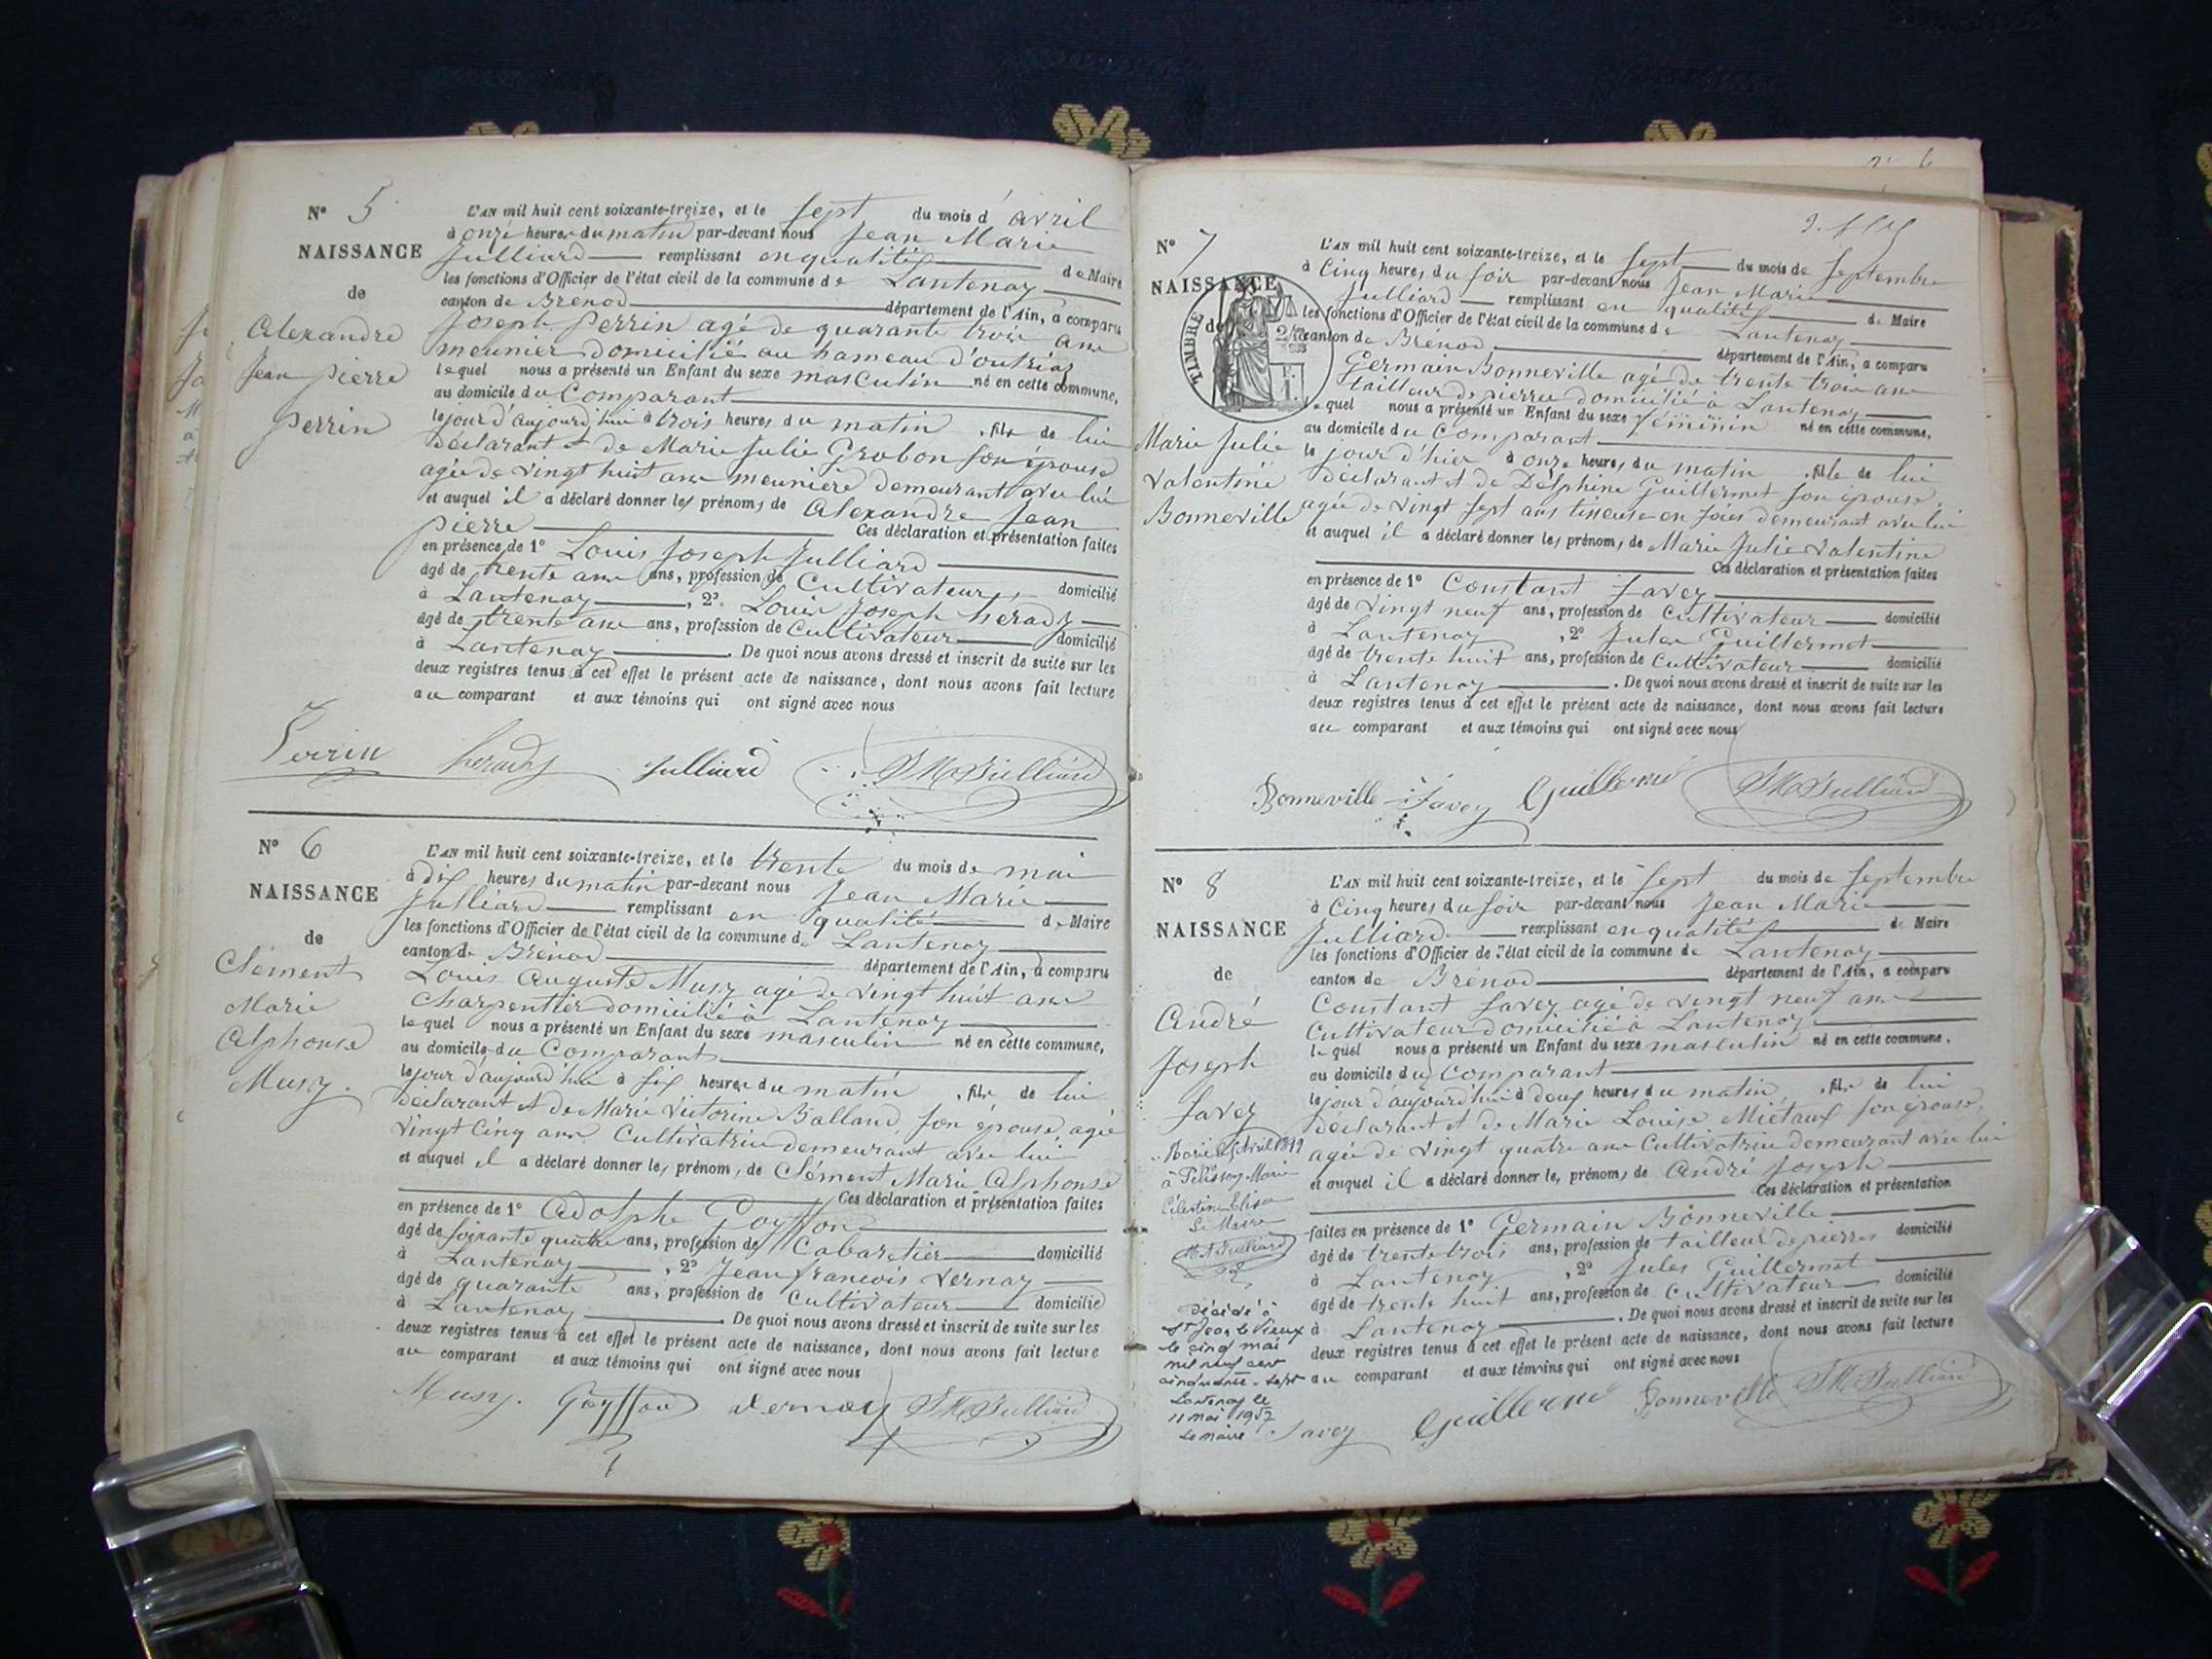 N° 5
NAISSANCE
de
Alexandre
Jean Pierre
Perrin
L'AN mil huit cent soixante-treize, et le sept du mois d'avril
à onze heures du matin par-devant nous Jean Marie
Julliard remplissant en qualité de Maire
les fonctions d'Officier de l'état civil de la commune de Lantenay
canton de Brénod département de l'Ain, a comparu
Joseph Perrin agé de quarante trois ans
meunier domicilié au hameau d'outriaz
lequel nous a présenté un Enfant du sexe masculin né en cette commune,
au domicile du Comparant
le jour d'aujourd'hui à trois heures du matin, fils de lui
déclarant et de Marie Julie Grobon son épouse
agée de vingt huit ans meunière demeurant avec lui
et auquel il a déclaré donner les prénoms de Alexandre Jean
Pierre Ces déclaration et présentation faites
en présence de 1° Louis Joseph Julliard
âgé de trente ans ans, profession de Cultivateur domicilié
à Lantenay, 2° Louis Joseph herady
âgé de trente ans ans, profession de Cultivateur domicilié
à Lantenay. De quoi nous avons dressé et inscrit de suite sur les
deux registres tenus à cet effet le présent acte de naissance, dont nous avons fait lecture
au comparant et aux témoins qui ont signé avec nous
Perrin herady Julliard JM Julliard
N° 6
NAISSANCE
de
Clément
Marie
Alphonse
Musy.
L'AN mil huit cent soixante-treize, et le trente du mois de mai
à dix heures du matin par-devant nous Jean Marie
Julliard remplissant en qualité de Maire
les fonctions d'Officier de l'état civil de la commune de Lantenay
canton de Brénod département de l'Ain, a comparu
Louis Auguste Musy agé de vingt huit ans
Charpentier domicilié à Lantenay
lequel nous a présenté un Enfant du sexe masculin né en cette commune,
au domicile du Comparant
le jour d'aujourd'hui à six heures du matin, fils de lui
déclarant et de Marie Victorine Balland son épouse agée
vingt cinq ans Cultivatrice demeurant avec lui
et auquel il a déclaré donner les prénoms de Clément Marie Alphonse
Ces déclaration et présentation faites
en présence de 1° Adolphe Goyffon
âgé de soixante quatre ans, profession de Cabaretier domicilié
à Lantenay, 2° Jean françois Vernay
âgé de quarante ans, profession de Cultivateur domicilié
à Lantenay. De quoi nous avons dressé et inscrit de suite sur les
deux registres tenus à cet effet le présent acte de naissance, dont nous avons fait lecture
au comparant et aux témoins qui ont signé avec nous
Musy. Goyffon Vernay JM Julliard
N° 7
NAISSANCE
de
TIMBRE
Marie Julie
Valentine
Bonneville
L'AN mil huit cent soixante-treize, et le sept du mois de Septembre
à Cinq heures du soir par-devant nous Jean Marie
Julliard remplissant en qualité de Maire
les fonctions d'Officier de l'état civil de la commune de Lantenay
canton de Brénod département de l'Ain, a comparu
Germain Bonneville agé de trente trois ans
tailleur de pierres domicilié à Lantenay
lequel nous a présenté un Enfant du sexe féminin né en cette commune,
au domicile du Comparant
le jour d'hier à onze heures du matin, fille de lui
déclarant et de Delphine Guillermet son épouse
agée de vingt sept ans tisseuse en soies demeurant avec lui
et auquel il a déclaré donner les prénoms de Marie Julie Valentine
Ces déclaration et présentation faites
en présence de 1° Constant Savey
âgé de vingt neuf ans, profession de Cultivateur domicilié
à Lantenay, 2° Jules Guillermet
âgé de trente huit ans, profession de Cultivateur domicilié
à Lantenay. De quoi nous avons dressé et inscrit de suite sur les
deux registres tenus à cet effet le présent acte de naissance, dont nous avons fait lecture
au comparant et aux témoins qui ont signé avec nous
Bonneville Savey Guillermet JM Julliard
N° 8
NAISSANCE
de
André
Joseph
Savey
Marié
à Pélissou Marie
Célestine Elisa
Le Maire
Décédé à
St Jean le Vieux
le cinq mai
mil neuf cent
cinquante-sept
Lantenay le
11 mai 1957
Le maire
L'AN mil huit cent soixante-treize, et le sept du mois de Septembre
à Cinq heures du soir par-devant nous Jean Marie
Julliard remplissant en qualité de Maire
les fonctions d'Officier de l'état civil de la commune de Lantenay
canton de Brénod département de l'Ain, a comparu
Constant Savey agé de vingt neuf ans
Cultivateur domicilié à Lantenay
lequel nous a présenté un Enfant du sexe masculin né en cette commune,
au domicile du Comparant
le jour d'aujourd'hui à deux heures du matin, fils de lui
déclarant et de Marie Louise Miétaux son épouse
agée de vingt quatre ans Cultivatrice demeurant avec lui
et auquel il a déclaré donner les prénoms de André Joseph
Ces déclaration et présentation
faites en présence de 1° Germain Bonneville
âgé de trente trois ans, profession de tailleur de pierres domicilié
à Lantenay, 2° Jules Guillermet
âgé de trente huit ans, profession de Cultivateur domicilié
à Lantenay. De quoi nous avons dressé et inscrit de suite sur les
deux registres tenus à cet effet le présent acte de naissance, dont nous avons fait lecture
au comparant et aux témoins qui ont signé avec nous
Savey Guillermet Bonneville JM Julliard